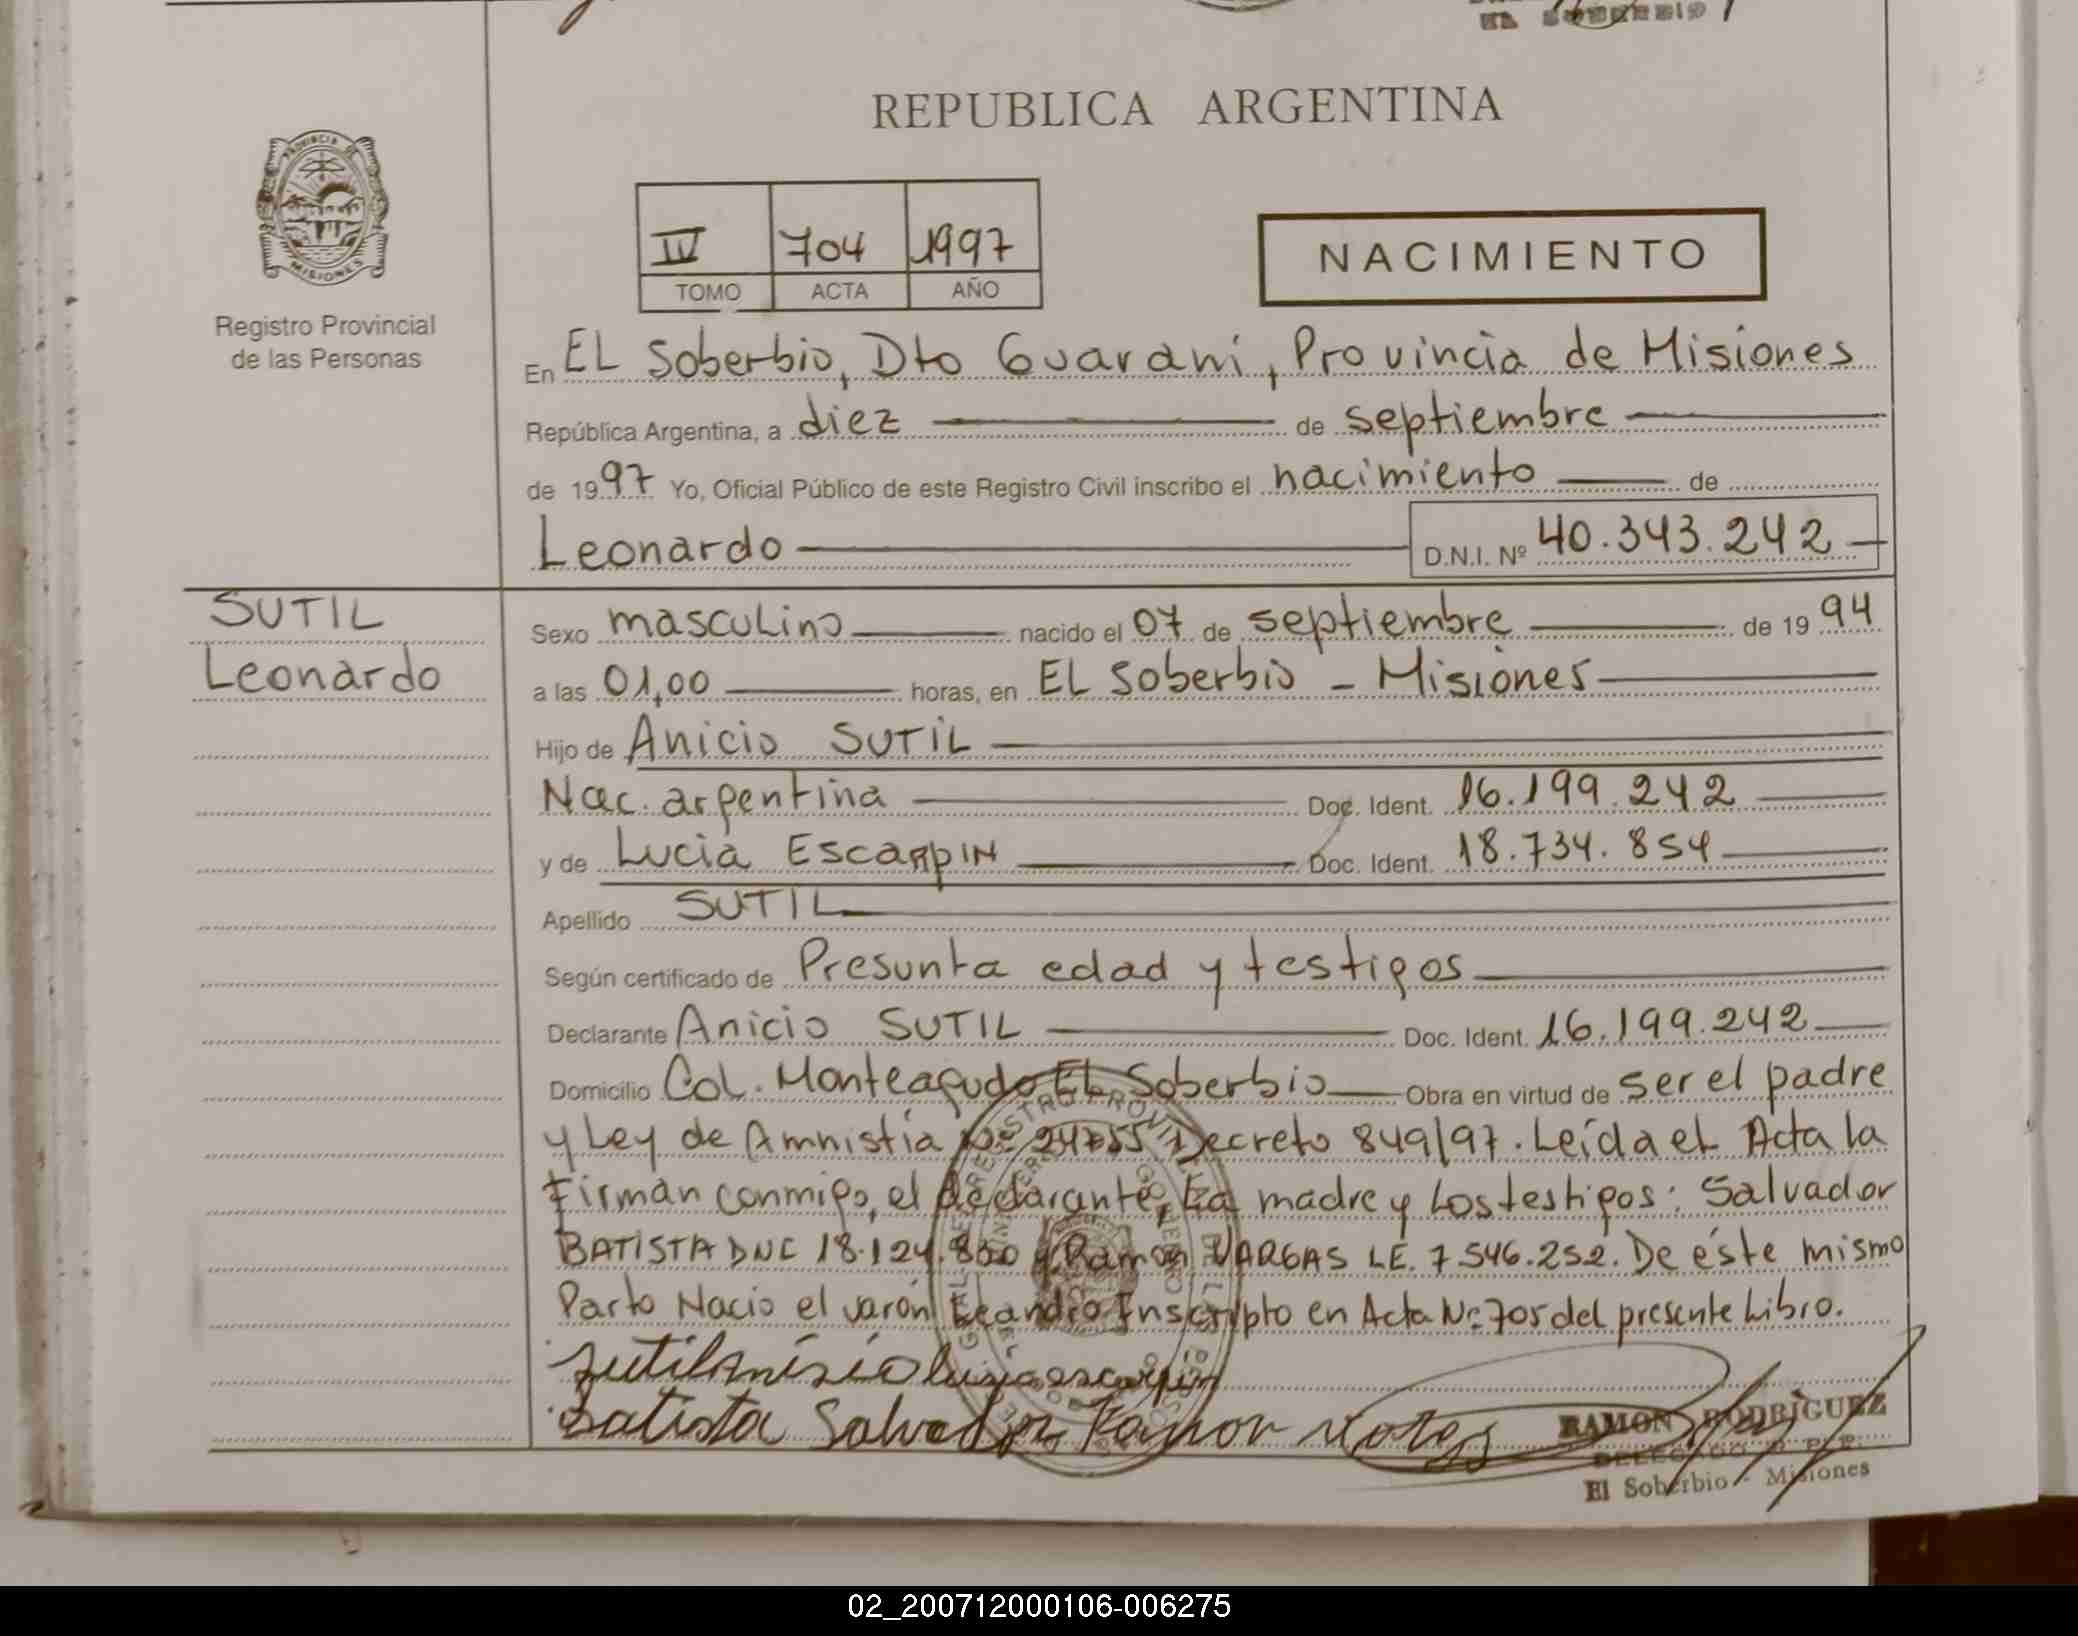 REPUBLICA ARGENTINA
PROVINCIA DE
MISIONES
Registro Provincial
de las Personas
IV 704 1997
TOMO ACTA AÑO
NACIMIENTO
En EL Soberbio, Dto Guarani, Provincia de Misiones
República Argentina, a diez de septiembre
de 1997 Yo, Oficial Público de este Registro Civil inscribo el nacimiento de
Leonardo D.N.I. Nº 40.343.242
SUTIL
Leonardo
Sexo masculino nacido el 07 de septiembre de 1994
a las 01,00 horas, en EL Soberbio - Misiones
Hijo de Anicio SUTIL
Nac. argentina Doc. Ident. 16.199.242
y de Lucia EscarpIN Doc. Ident. 18.734.854
Apellido SUTIL
Según certificado de Presunta edad y testigos
Declarante Anicio SUTIL Doc. Ident. 16.199.242
Domicilio Col. Monteagudo EL Soberbio Obra en virtud de ser el padre
y Ley de Amnistía Nº 24755 Decreto 849/97. Leída el Acta la
firman conmigo, el declarante, La madre y Los testigos: Salvador
BATISTA DNI 18.124.830 y Ramon VARGAS LE. 7.546.252. De éste mismo
Parto Nacio el varón Leandro Inscripto en Acta Nº 705 del presente Libro.
sutil Anisio lusia escarpin
Batista Salvador Ramon
RAMON RODRIGUEZ
DELEGADO R. P. P.
El Soberbio - Misiones
02_200712000106-006275